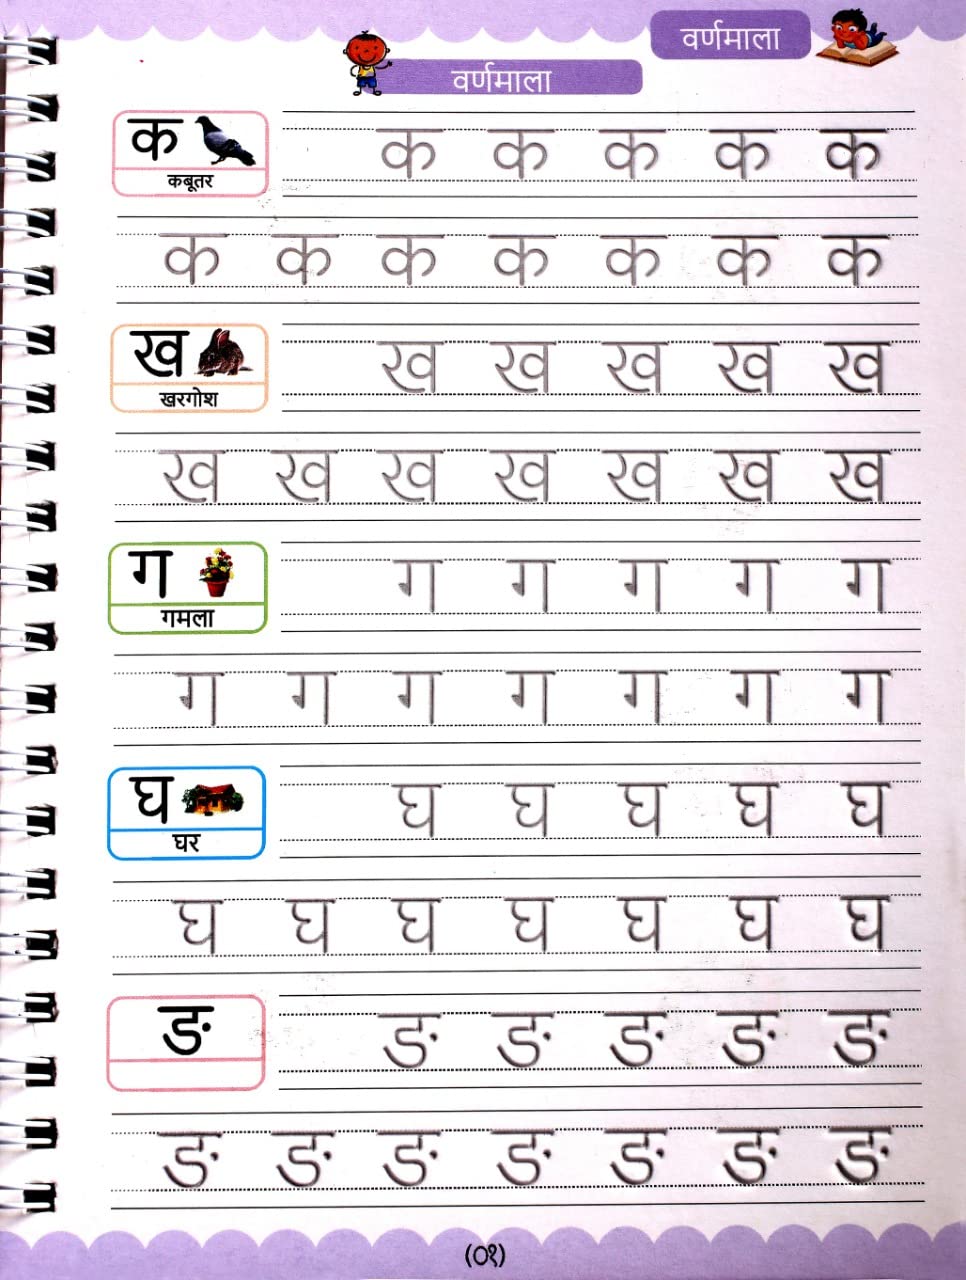 वर्णमाला
वर्णमाला
क क क क क क
कबूतर
क क क क क क क
ख ख ख ख ख ख
खरगोश
ख ख ख ख ख ख ख
ग ग ग ग ग ग
गमला
ग ग ग ग ग ग ग
घ घ घ घ घ घ
घर
घ घ घ घ घ घ घ
ङ ङ ङ ङ ङ ङ
ङ ङ ङ ङ ङ ङ ङ
(०१)